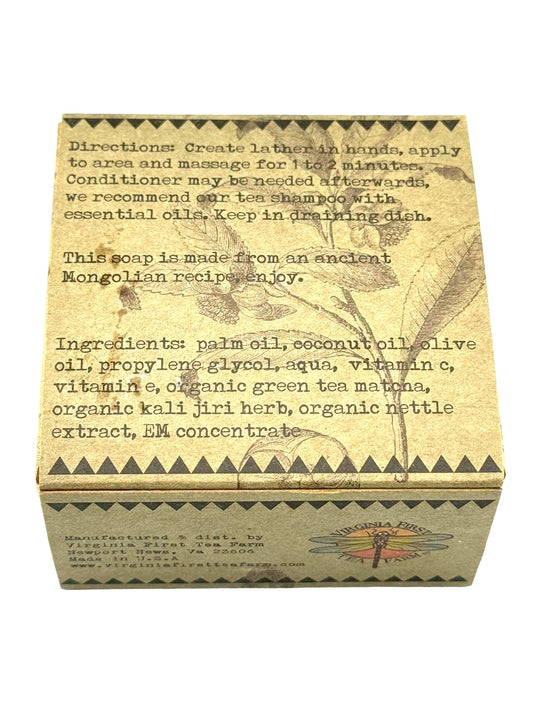 Directions: Create lather in hands, apply
to area and massage for 1 to 2 minutes.
Conditioner may be needed afterwards,
we recommend our tea shampoo with
essential oils. Keep in draining dish.
This soap is made from an ancient
Mongolian recipe, enjoy.
Ingredients: palm oil, coconut oil, olive
oil, propylene glycol, aqua, vitamin c,
vitamin e, organic green tea matcha,
organic kali jiri herb, organic nettle
extract, EM concentrate
Manufactured & dist. by
Virginia First Tea Farm
Newport News, Va 23606
Made in U.S.A
www.virginiafirstteafarm.com
VIRGINIA FIRST
TEA FARM